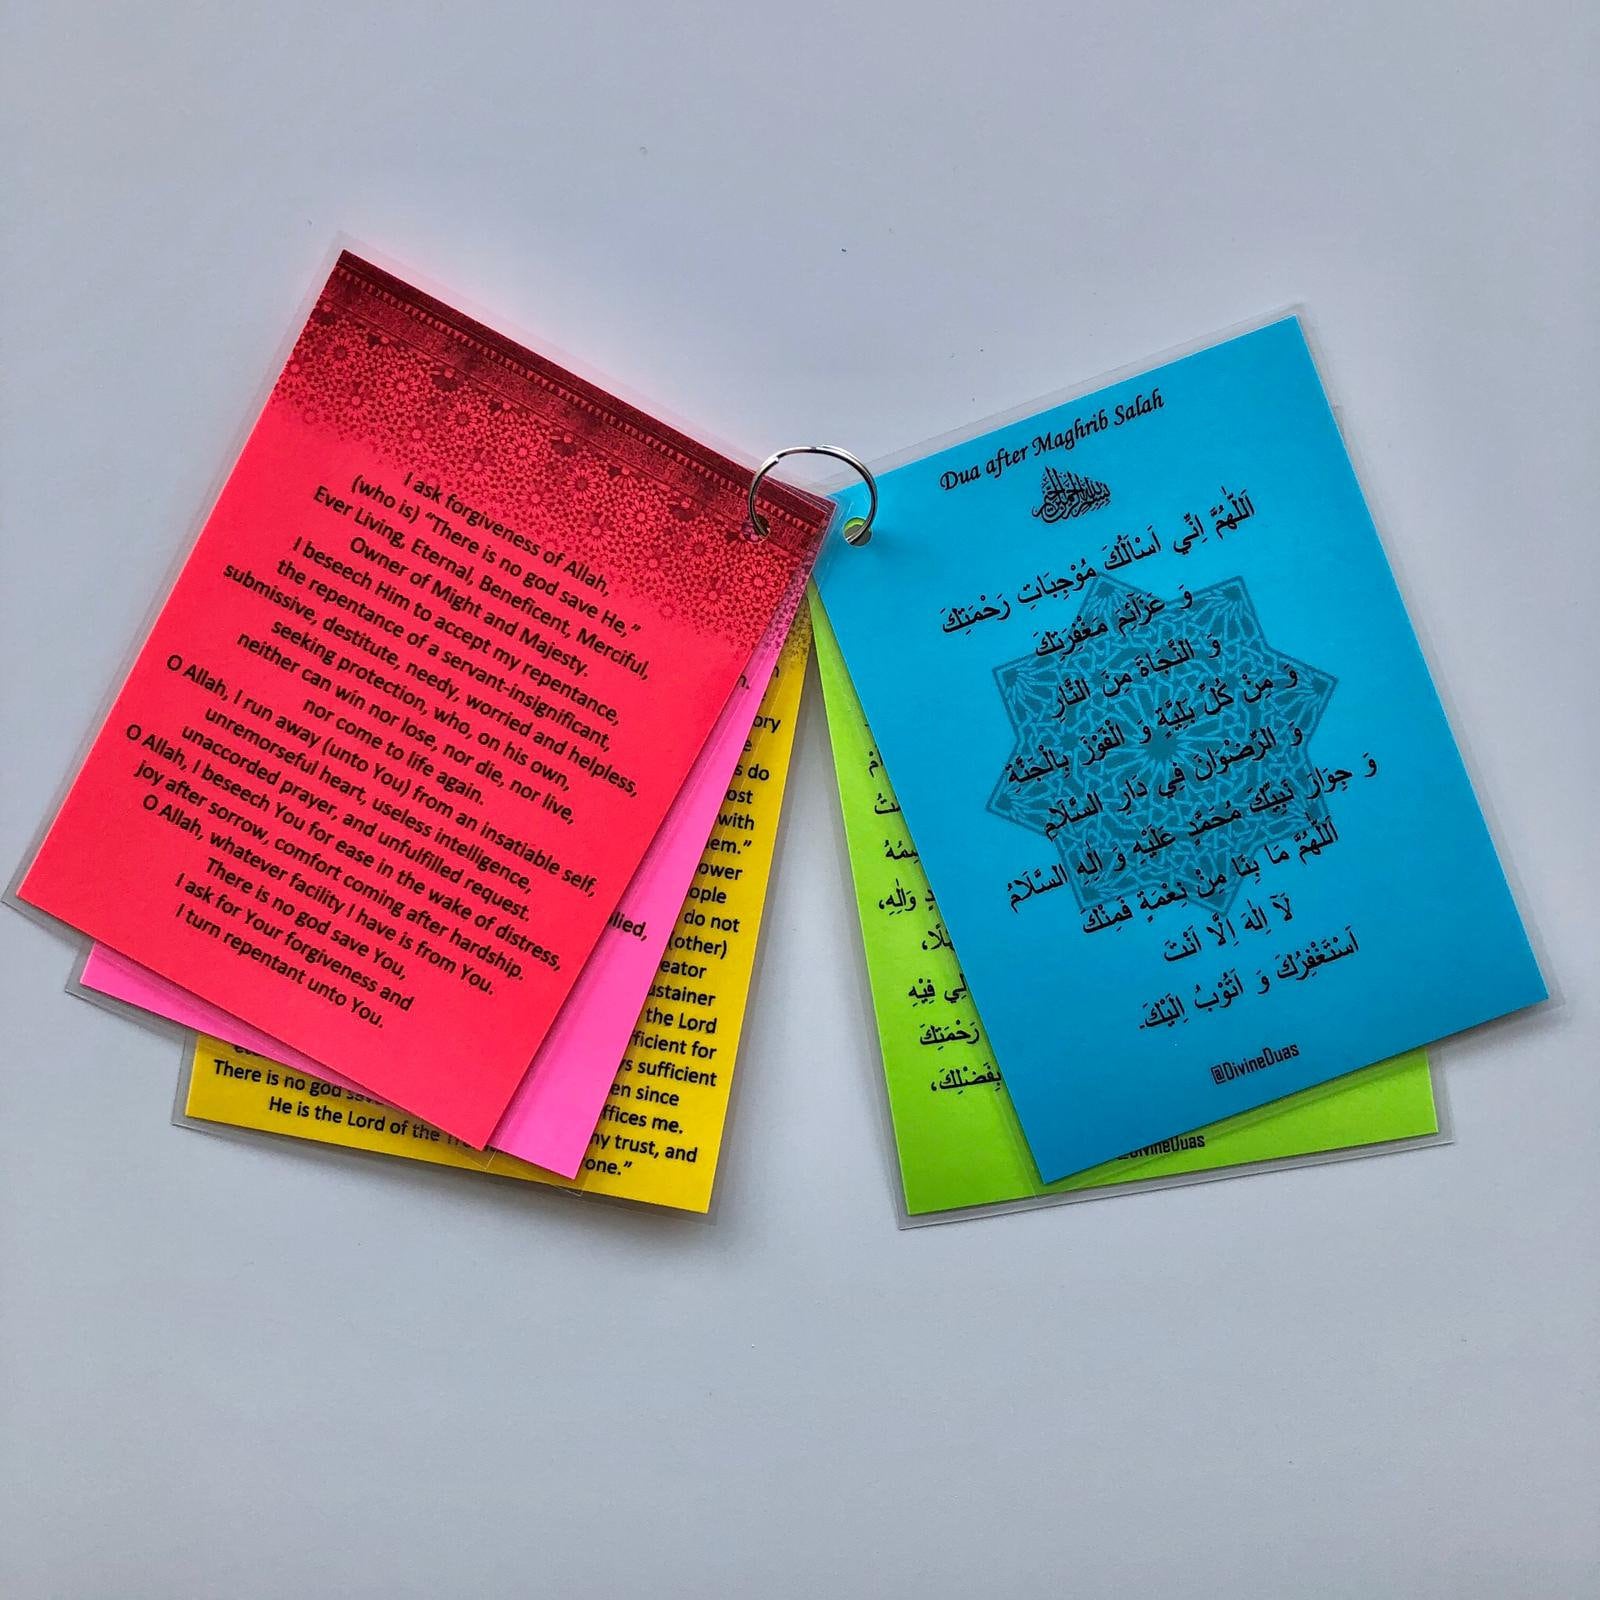 I ask forgiveness of Allah,
(who is) “There is no god save He,”
Ever Living, Eternal, Beneficent, Merciful,
Owner of Might and Majesty.
I beseech Him to accept my repentance,
the repentance of a servant-insignificant,
submissive, destitute, needy, worried and helpless,
seeking protection, who, on his own,
neither can win nor lose, nor die, nor live,
nor come to life again.
O Allah, I run away (unto You) from an insatiable self,
unremorseful heart, useless intelligence,
unaccorded prayer, and unfulfilled request.
O Allah, I beseech You for ease in the wake of distress,
joy after sorrow, comfort coming after hardship.
O Allah, whatever facility I have is from You.
There is no god save You,
I ask for Your forgiveness and
I turn repentant unto You.
lied,
ory
s do
ost
with
em.”
ower
ople
do not
(other)
eator
ustainer
the Lord
fficient for
s sufficient
en since
There is no god save
ffices me.
He is the Lord of the
my trust, and
one.”
Dua after Maghrib Salah
بسم الله الرحمن الرحيم
اَللّٰهُمَّ اِنِّي اَسْاَلُكَ مُوْجِبَاتِ رَحْمَتِكَ
وَ عَزَآئِمَ مَغْفِرَتِكَ
وَ النَّجَاةَ مِنَ النَّارِ
وَ مِنْ كُلِّ بَلِيَّةٍ وَ الْفَوْزَ بِالْجَنَّةِ
وَ الرِّضْوَانَ فِي دَارِ السَّلَامِ
وَ جِوَارَ نَبِيِّكَ مُحَمَّدٍ عَلَيْهِ وَ اٰلِهِ السَّلَامُ
اَللّٰهُمَّ مَا بِنَا مِنْ نِعْمَةٍ فَمِنْكَ
لَآ اِلٰهَ اِلَّا اَنْتَ
اَسْتَغْفِرُكَ وَ اَتُوْبُ اِلَيْكَ.
@DivineDuas
وَاٰلِهِ،
لِي فِيْهِ
رَحْمَتِكَ
بِفَضْلِكَ،
DivineDuas